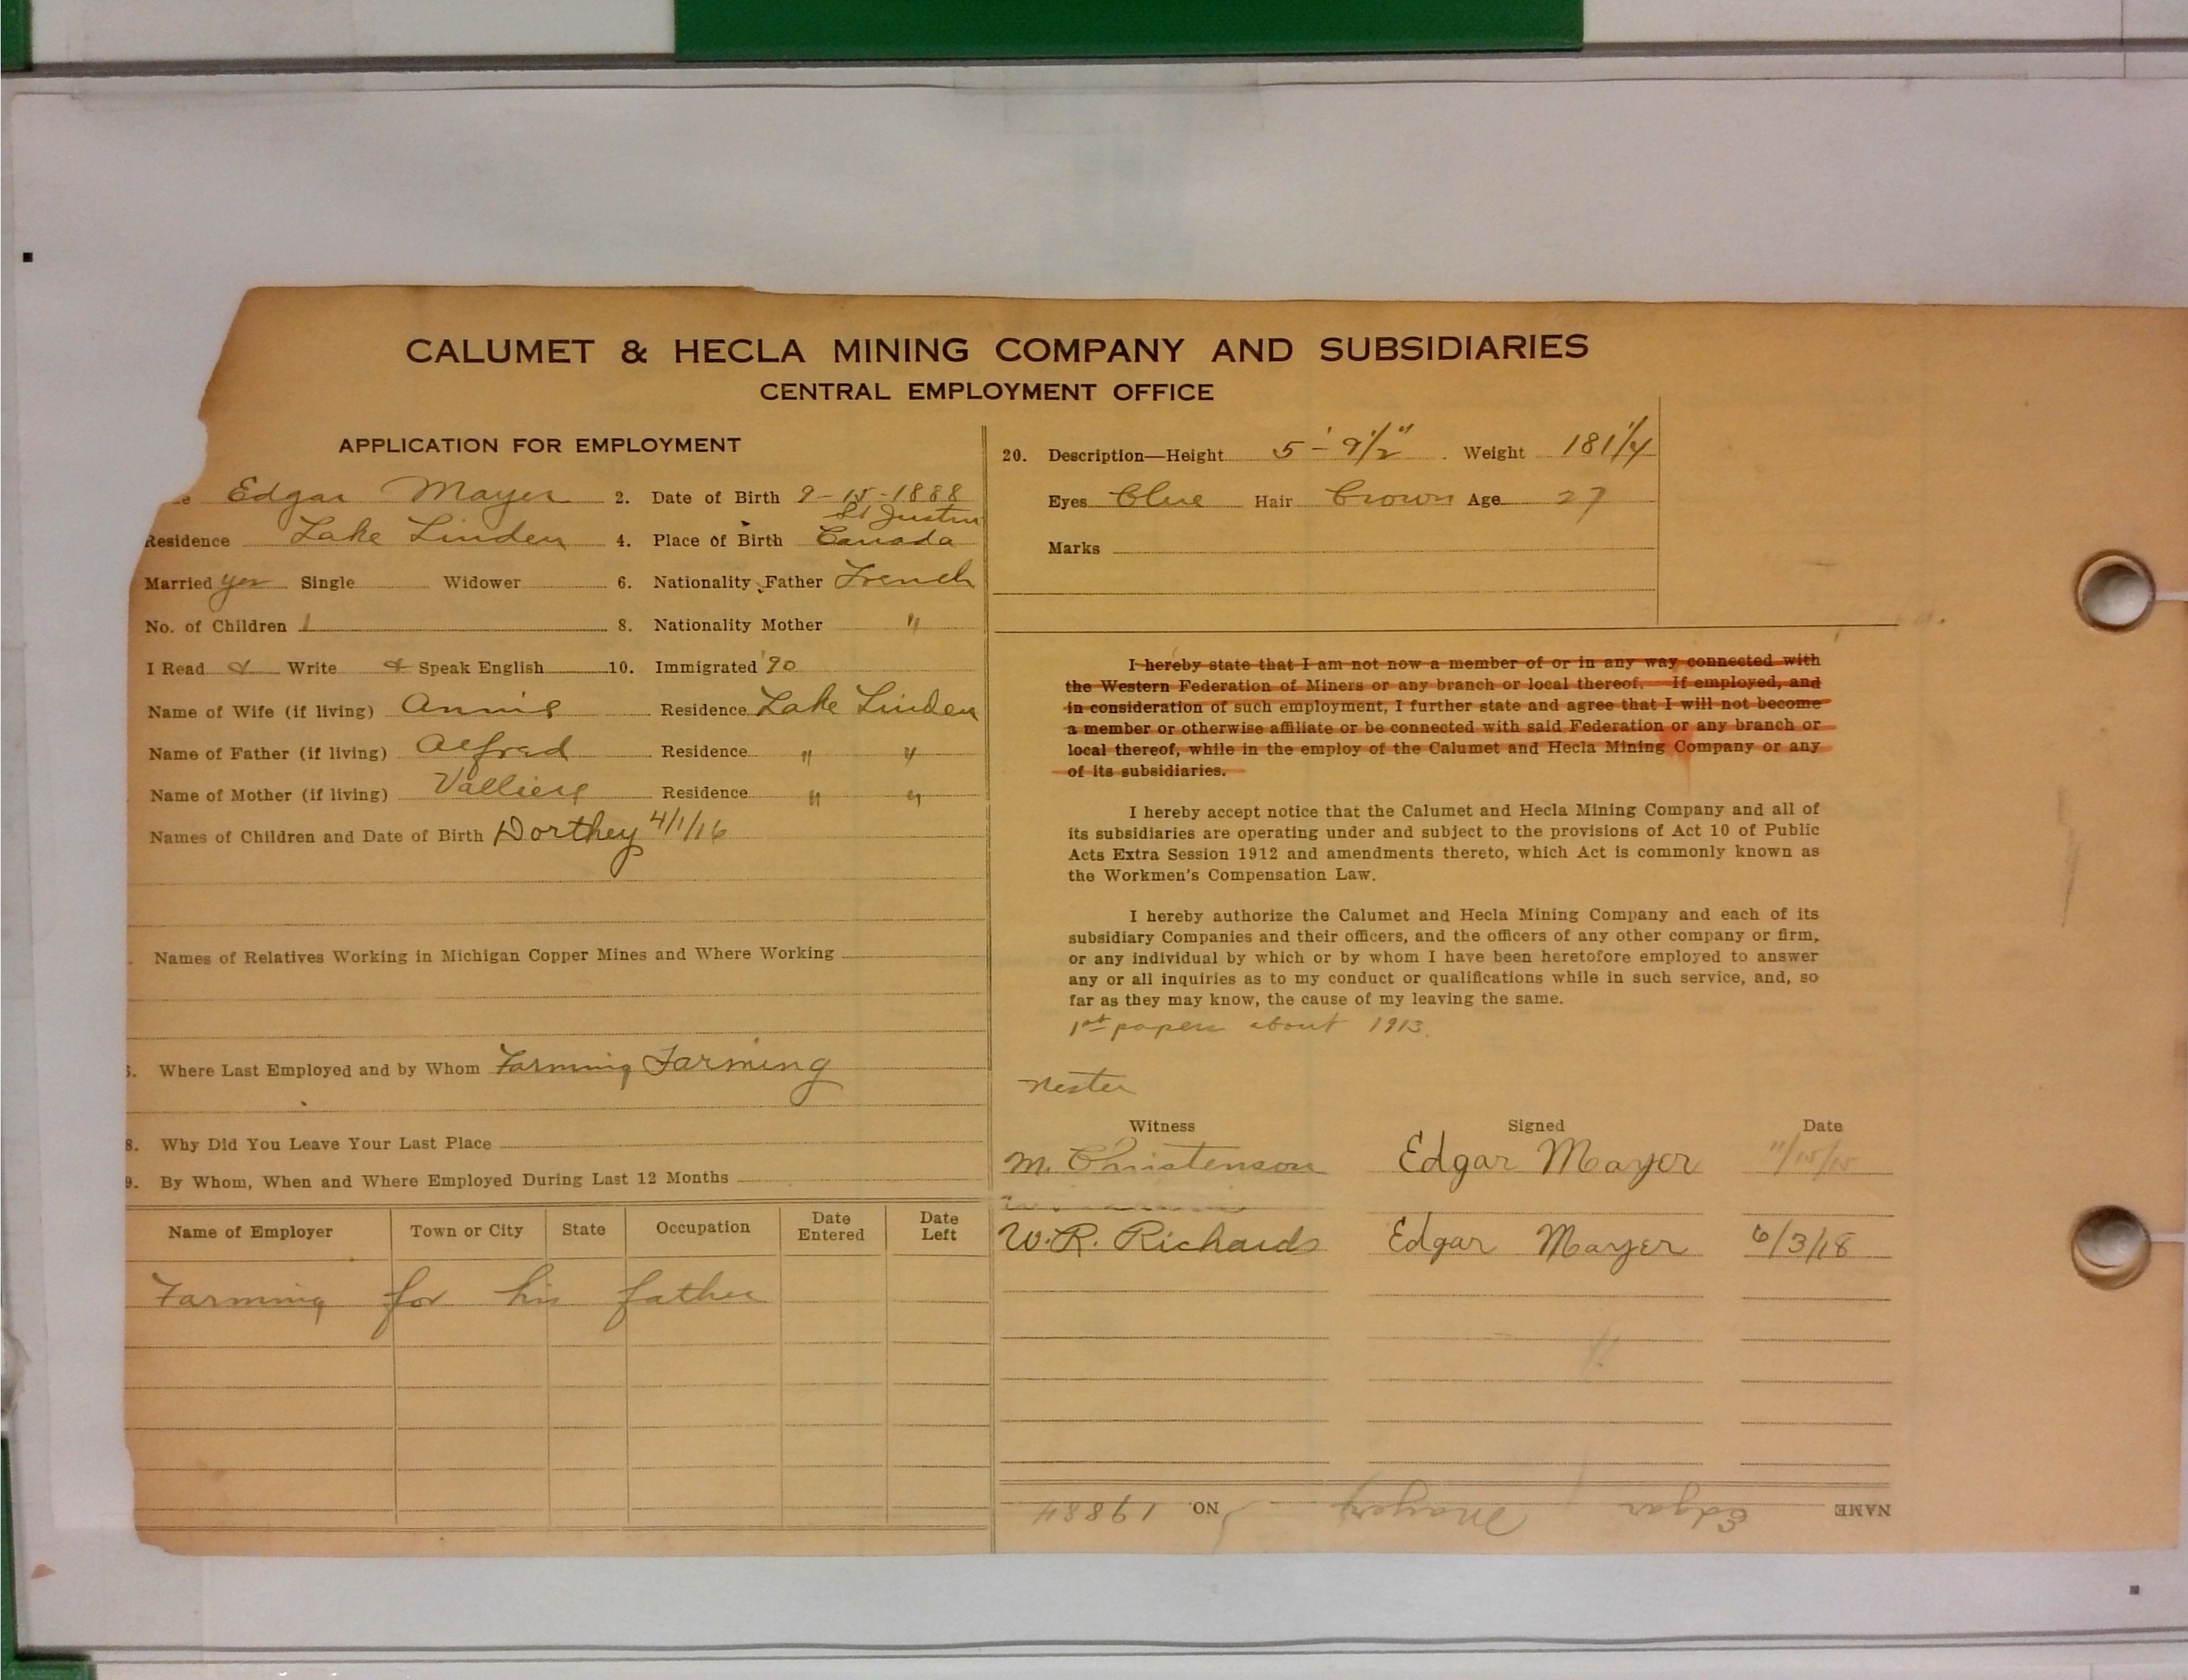 CALUMET & HECLA MINING COMPANY AND SUBSIDIARIES
CENTRAL EMPLOYMENT OFFICE
APPLICATION FOR EMPLOYMENT
Edgar Mayer 2. Date of Birth 9-15-1888
St Justin
Residence Lake Linden 4. Place of Birth Canada
Married yes Single Widower 6. Nationality Father French
No. of Children 1 8. Nationality Mother "
I Read & Write & Speak English 10. Immigrated '90
Name of Wife (if living) Annie Residence Lake Linden
Name of Father (if living) Alfred Residence " "
Name of Mother (if living) Valliere Residence " "
Names of Children and Date of Birth Dorthey 4/1/16
Names of Relatives Working in Michigan Copper Mines and Where Working
Where Last Employed and by Whom Farming Farming
8. Why Did You Leave Your Last Place
9. By Whom, When and Where Employed During Last 12 Months
Name of Employer Town or City State Occupation Date Entered Date Left
Farming for his father
20. Description—Height 5'-9½" Weight 181¼
Eyes Blue Hair Brown Age 27
Marks
I hereby state that I am not now a member of or in any way connected with
the Western Federation of Miners or any branch or local thereof. If employed, and
in consideration of such employment, I further state and agree that I will not become
a member or otherwise affiliate or be connected with said Federation or any branch or
local thereof, while in the employ of the Calumet and Hecla Mining Company or any
of its subsidiaries.
I hereby accept notice that the Calumet and Hecla Mining Company and all of
its subsidiaries are operating under and subject to the provisions of Act 10 of Public
Acts Extra Session 1912 and amendments thereto, which Act is commonly known as
the Workmen's Compensation Law.
I hereby authorize the Calumet and Hecla Mining Company and each of its
subsidiary Companies and their officers, and the officers of any other company or firm,
or any individual by which or by whom I have been heretofore employed to answer
any or all inquiries as to my conduct or qualifications while in such service, and, so
far as they may know, the cause of my leaving the same.
1st papers about 1913.
Nester
Witness Signed Date
M. Christenson Edgar Mayer 11/15/15
W. R. Richards Edgar Mayer 6/3/18
NAME Edgar Mayer NO. 19884